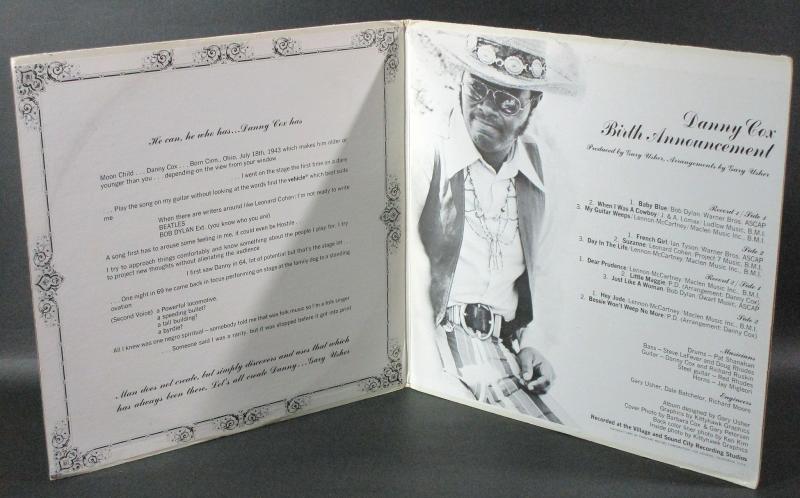 He can, he who has...Danny Cox has
Moon Child . . . Danny Cox . . . Born Cinn., Ohio, July 18th, 1943 which makes him older or
younger than you . . . depending on the view from your window
. . . I went on the stage the first time on a dare
. . . Play the song on my guitar without looking at the words find the vehicle" which best suits
me
When there are writers around like Leonard Cohen: I'm not ready to write
BEATLES
BOB DYLAN Ext. (you know who you are)
A song first has to arouse some feeling in me, it could even be Hostile . . .
I try to approach things comfortably and know something about the people I play for. I try
to project new thoughts without alienating the audience
I first saw Danny in 64, lot of potential but that's the stage let . . .
. . . One night in 69 he came back in focus performing on stage at the family dog to a standing
ovation
(Second Voice) a Powerful locomotive.
a speeding bullet?
a tall building?
a byrdie?
All I knew was one negro spiritual – somebody told me that was folk music so I'm a folk singer
. . . Someone said I was a rarity, but it was stopped before it got into print
Man does not create, but simply discovers and uses that which
has always been there. Let's all create Danny...Gary Usher
Danny Cox
Birth Announcement
Produced by Gary Usher, Arrangements by Gary Usher
Record 1 / Side 1
1. Baby Blue / Bob Dylan / Warner Bros. ASCAP
2. When I Was A Cowboy / J. & A. Lomax / Ludlow Music, B.M.I.
3. My Guitar Weeps / Lennon-McCartney / Maclen Music Inc., B.M.I.
Side 2
1. French Girl / Ian Tyson / Warner Bros. ASCAP
2. Suzanne / Leonard Cohen / Project 7 Music, B.M.I.
3. Day In The Life / Lennon-McCartney / Maclen Music Inc., B.M.I.
Record 2 / Side 1
1. Dear Prudence / Lennon-McCartney / Maclen Music Inc., B.M.I.
2. Little Maggie / P.D. (Arrangement: Danny Cox)
3. Just Like A Woman / Bob Dylan / Dwarf Music, ASCAP
Side 2
1. Hey Jude / Lennon-McCartney / Maclen Music Inc., B.M.I.
2. Bessie Won't Weep No More / P.D. (Arrangement: Danny Cox)
Musicians
Drums – Pat Shanahan
Bass – Steve LaFever and Doug Rhodes
Guitar – Danny Cox and Richard Ruskin
Steel guitar – Red Rhodes
Horns – Jay Migliori
Engineers
Gary Usher, Dale Batchelor, Richard Moore
Album designed by Gary Usher
Graphics by Kittyhawk Graphics
Cover Photo by Barbara Cox & Gary Petersen
Back color liner photo by Ken Kim
Inside photo by Kittyhawk Graphics
Recorded at the Village and Sound City Recording Studios